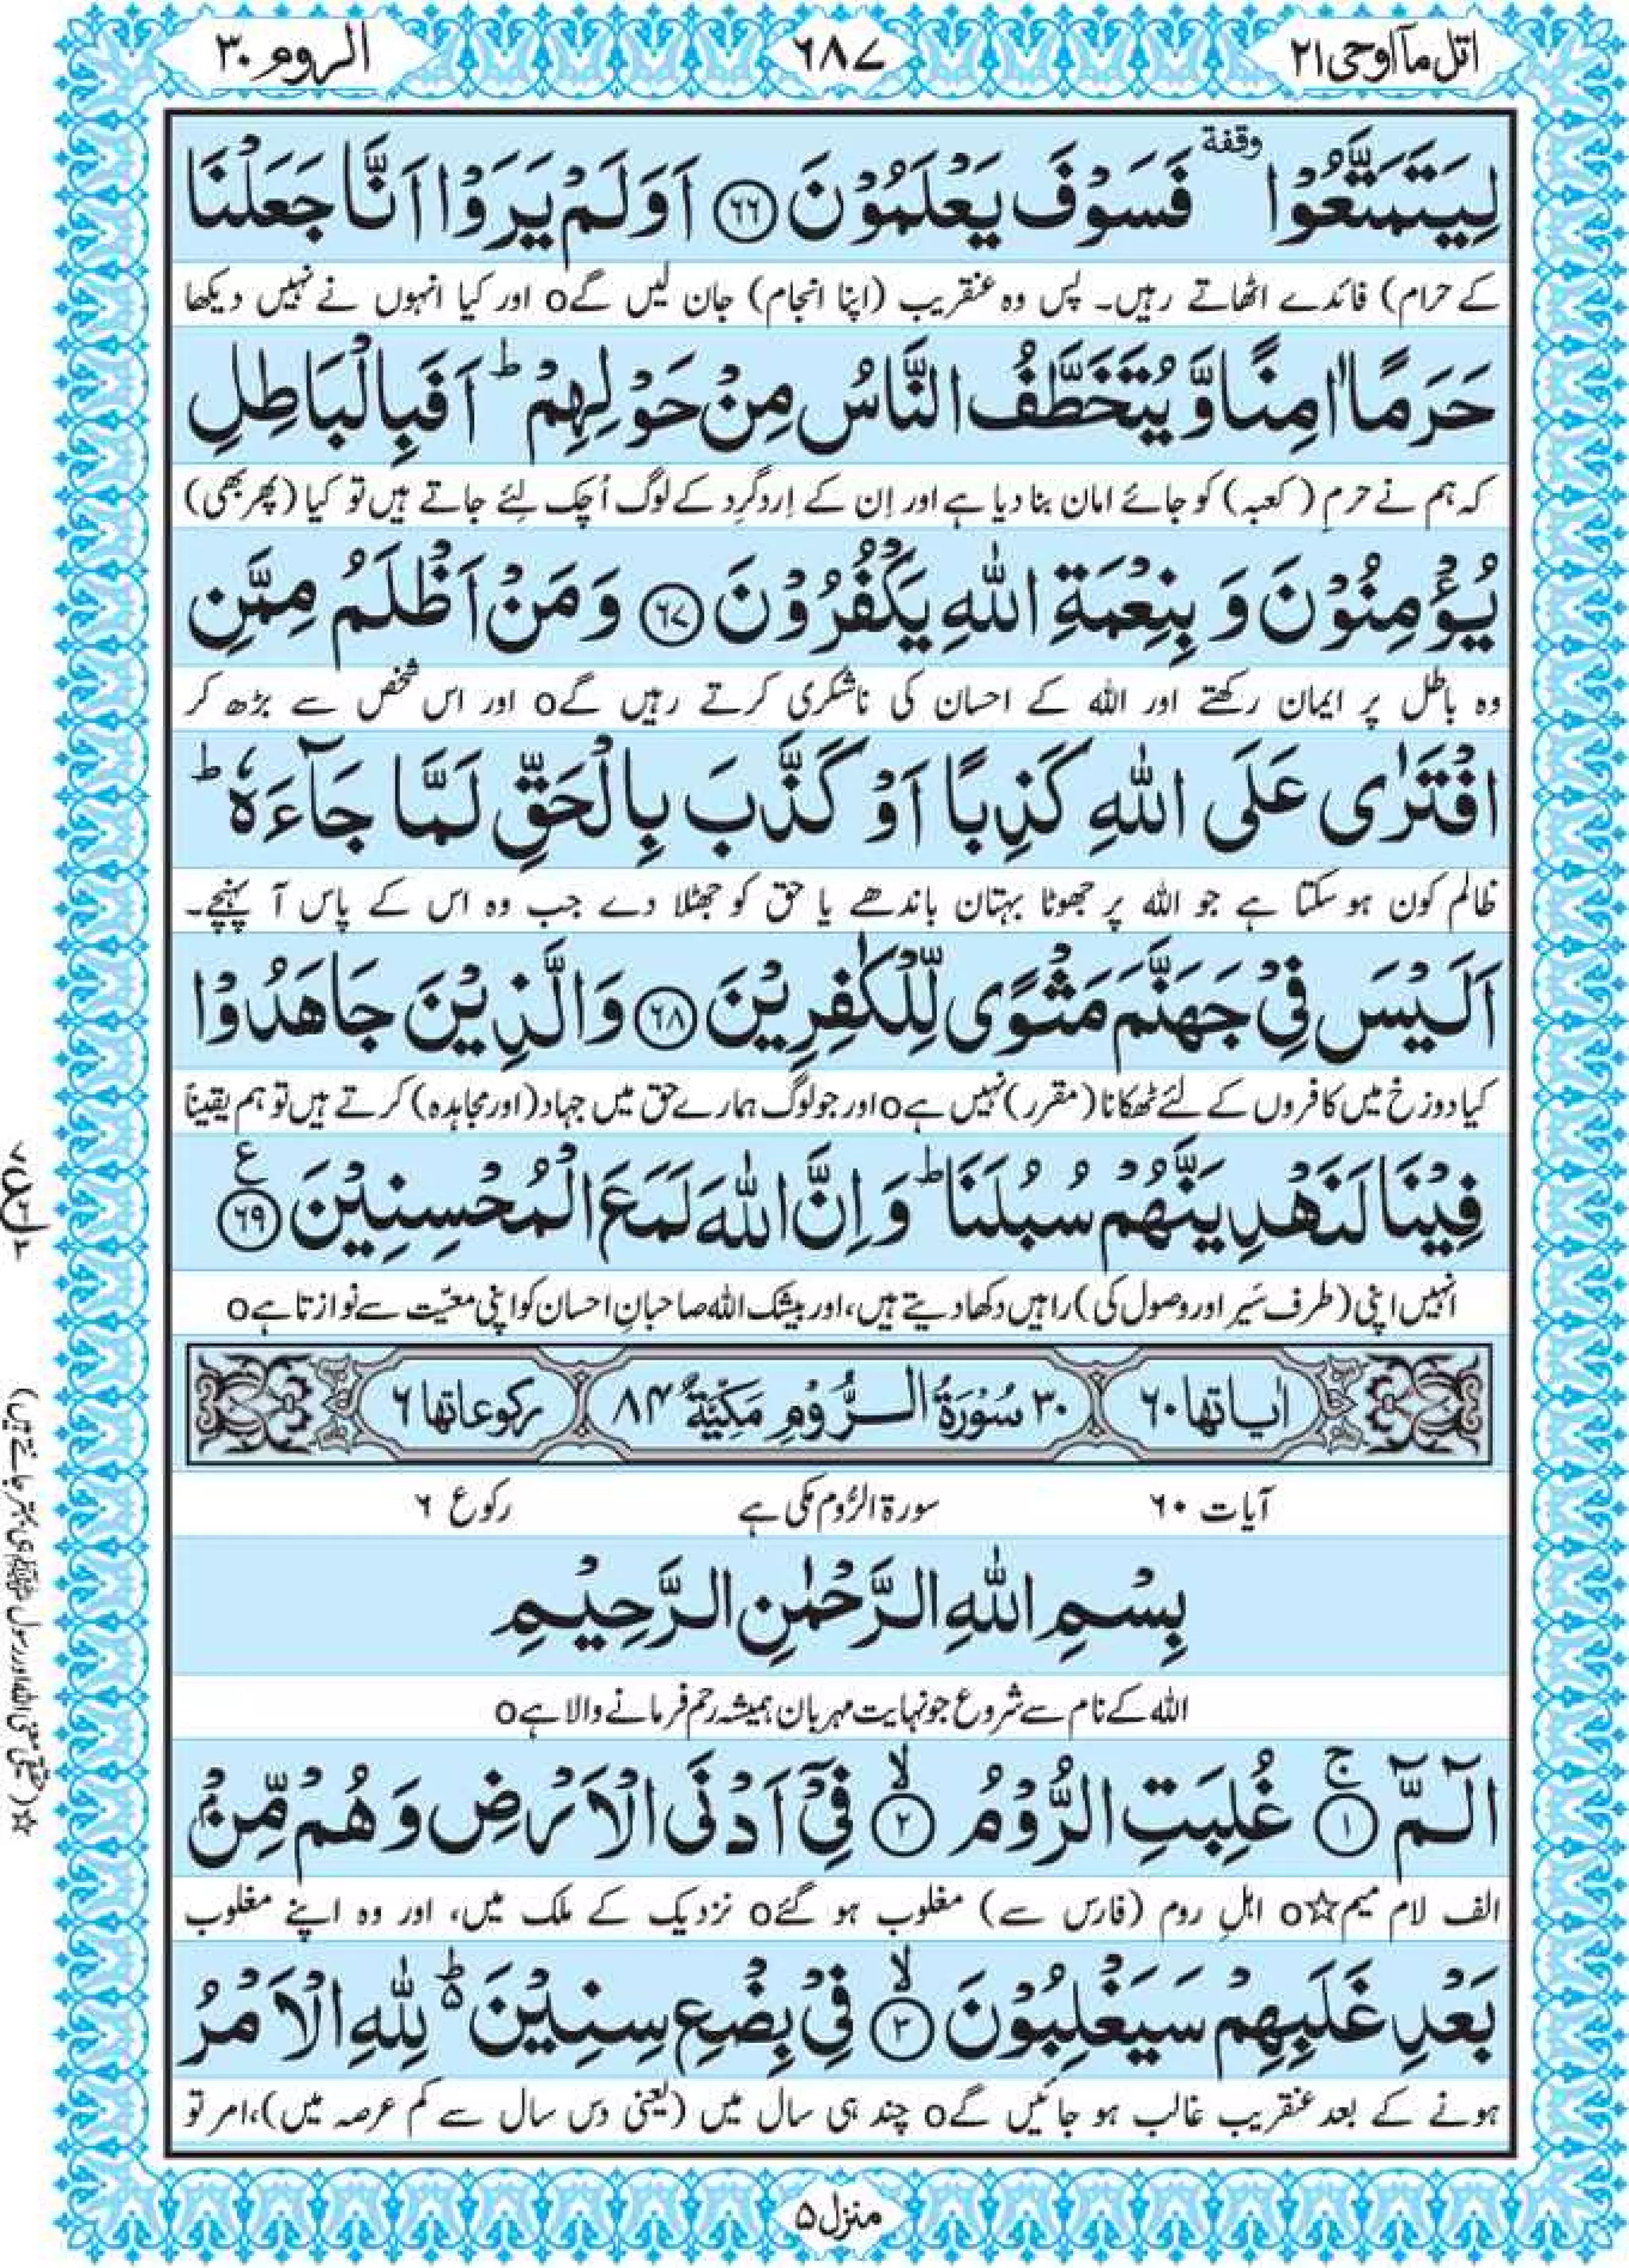 اتل مآ اوحی ۲۱
۶۸۷
الروم ۳۰
لِيَتَمَتَّعُوْا وقفة فَسَوْفَ يَعْلَمُوْنَ ۶۶ اَوَلَمْ يَرَوْا اَنَّا جَعَلْنَا
کے حرام) فائدے اٹھاتے رہیں۔ پس وہ عنقریب (اپنا انجام) جان لیں گے o اور کیا انہوں نے نہیں دیکھا
حَرَمًا اٰمِنًا وَّ يُتَخَطَّفُ النَّاسُ مِنْ حَوْلِهِمْ ؕ اَفَبِالْبَاطِلِ
کہ ہم نے حرمِ (کعبہ) کو جائے امان بنا دیا ہے اور اِن کے اِردگرد کے لوگ اُچک لئے جاتے ہیں تو کیا (پھر بھی)
يُؤْمِنُوْنَ وَ بِنِعْمَةِ اللّٰهِ يَكْفُرُوْنَ ۶۷ وَ مَنْ اَظْلَمُ مِمَّنِ
وہ باطل پر ایمان رکھتے اور اللہ کے احسان کی ناشکری کرتے رہیں گے o اور اس شخص سے بڑھ کر
افْتَرٰى عَلَى اللّٰهِ كَذِبًا اَوْ كَذَّبَ بِالْحَقِّ لَمَّا جَآءَهٗ ؕ
ظالم کون ہو سکتا ہے جو اللہ پر جھوٹا بہتان باندھے یا حق کو جھٹلا دے جب وہ اس کے پاس آ پہنچے۔
اَلَيْسَ فِيْ جَهَنَّمَ مَثْوًى لِّلْكٰفِرِيْنَ ۶۸ وَ الَّذِيْنَ جَاهَدُوْا
کیا دوزخ میں کافروں کے لئے ٹھکانا (مقرر) نہیں ہے o اور جو لوگ ہمارے حق میں جہاد (اور مجاہدہ) کرتے ہیں تو ہم یقیناً
فِيْنَا لَنَهْدِيَنَّهُمْ سُبُلَنَا ؕ وَ اِنَّ اللّٰهَ لَمَعَ الْمُحْسِنِيْنَ ۶۹ ع
انہیں اپنی (طرف سَیر اور وصول کی) راہیں دکھا دیتے ہیں، اور بیشک اللہ صاحبانِ احسان کو اپنی معیّت سے نوازتا ہے o
اٰیاتها ۶۰
۳۰ سُوْرَةُ الرُّوْمِ مَكِّيَّةٌ ۸۴
رکوعاتها ۶
آیات ۶۰
سورۃ الرُّوم مکی ہے
رکوع ۶
بِسْمِ اللّٰهِ الرَّحْمٰنِ الرَّحِيْمِ
اللہ کے نام سے شروع جو نہایت مہربان ہمیشہ رحم فرمانے والا ہے o
الٓمّٓ ۱ ج غُلِبَتِ الرُّوْمُ ۲ لا فِيْۤ اَدْنَى الْاَرْضِ وَ هُمْ مِّنْۢ
الف لام میم☆ o اہلِ روم (فارس سے) مغلوب ہو گئے o نزدیک کے ملک میں، اور وہ اپنے مغلوب
بَعْدِ غَلَبِهِمْ سَيَغْلِبُوْنَ ۳ لا فِيْ بِضْعِ سِنِيْنَ ؕ۬ لِلّٰهِ الْاَمْرُ
ہونے کے بعد عنقریب غالب ہو جائیں گے o چند ہی سال میں (یعنی دس سال سے کم عرصہ میں)، امر تو
منزل ۵
☆ (حقیقی معنی اللہ اور رسول ﷺ ہی بہتر جانتے ہیں)